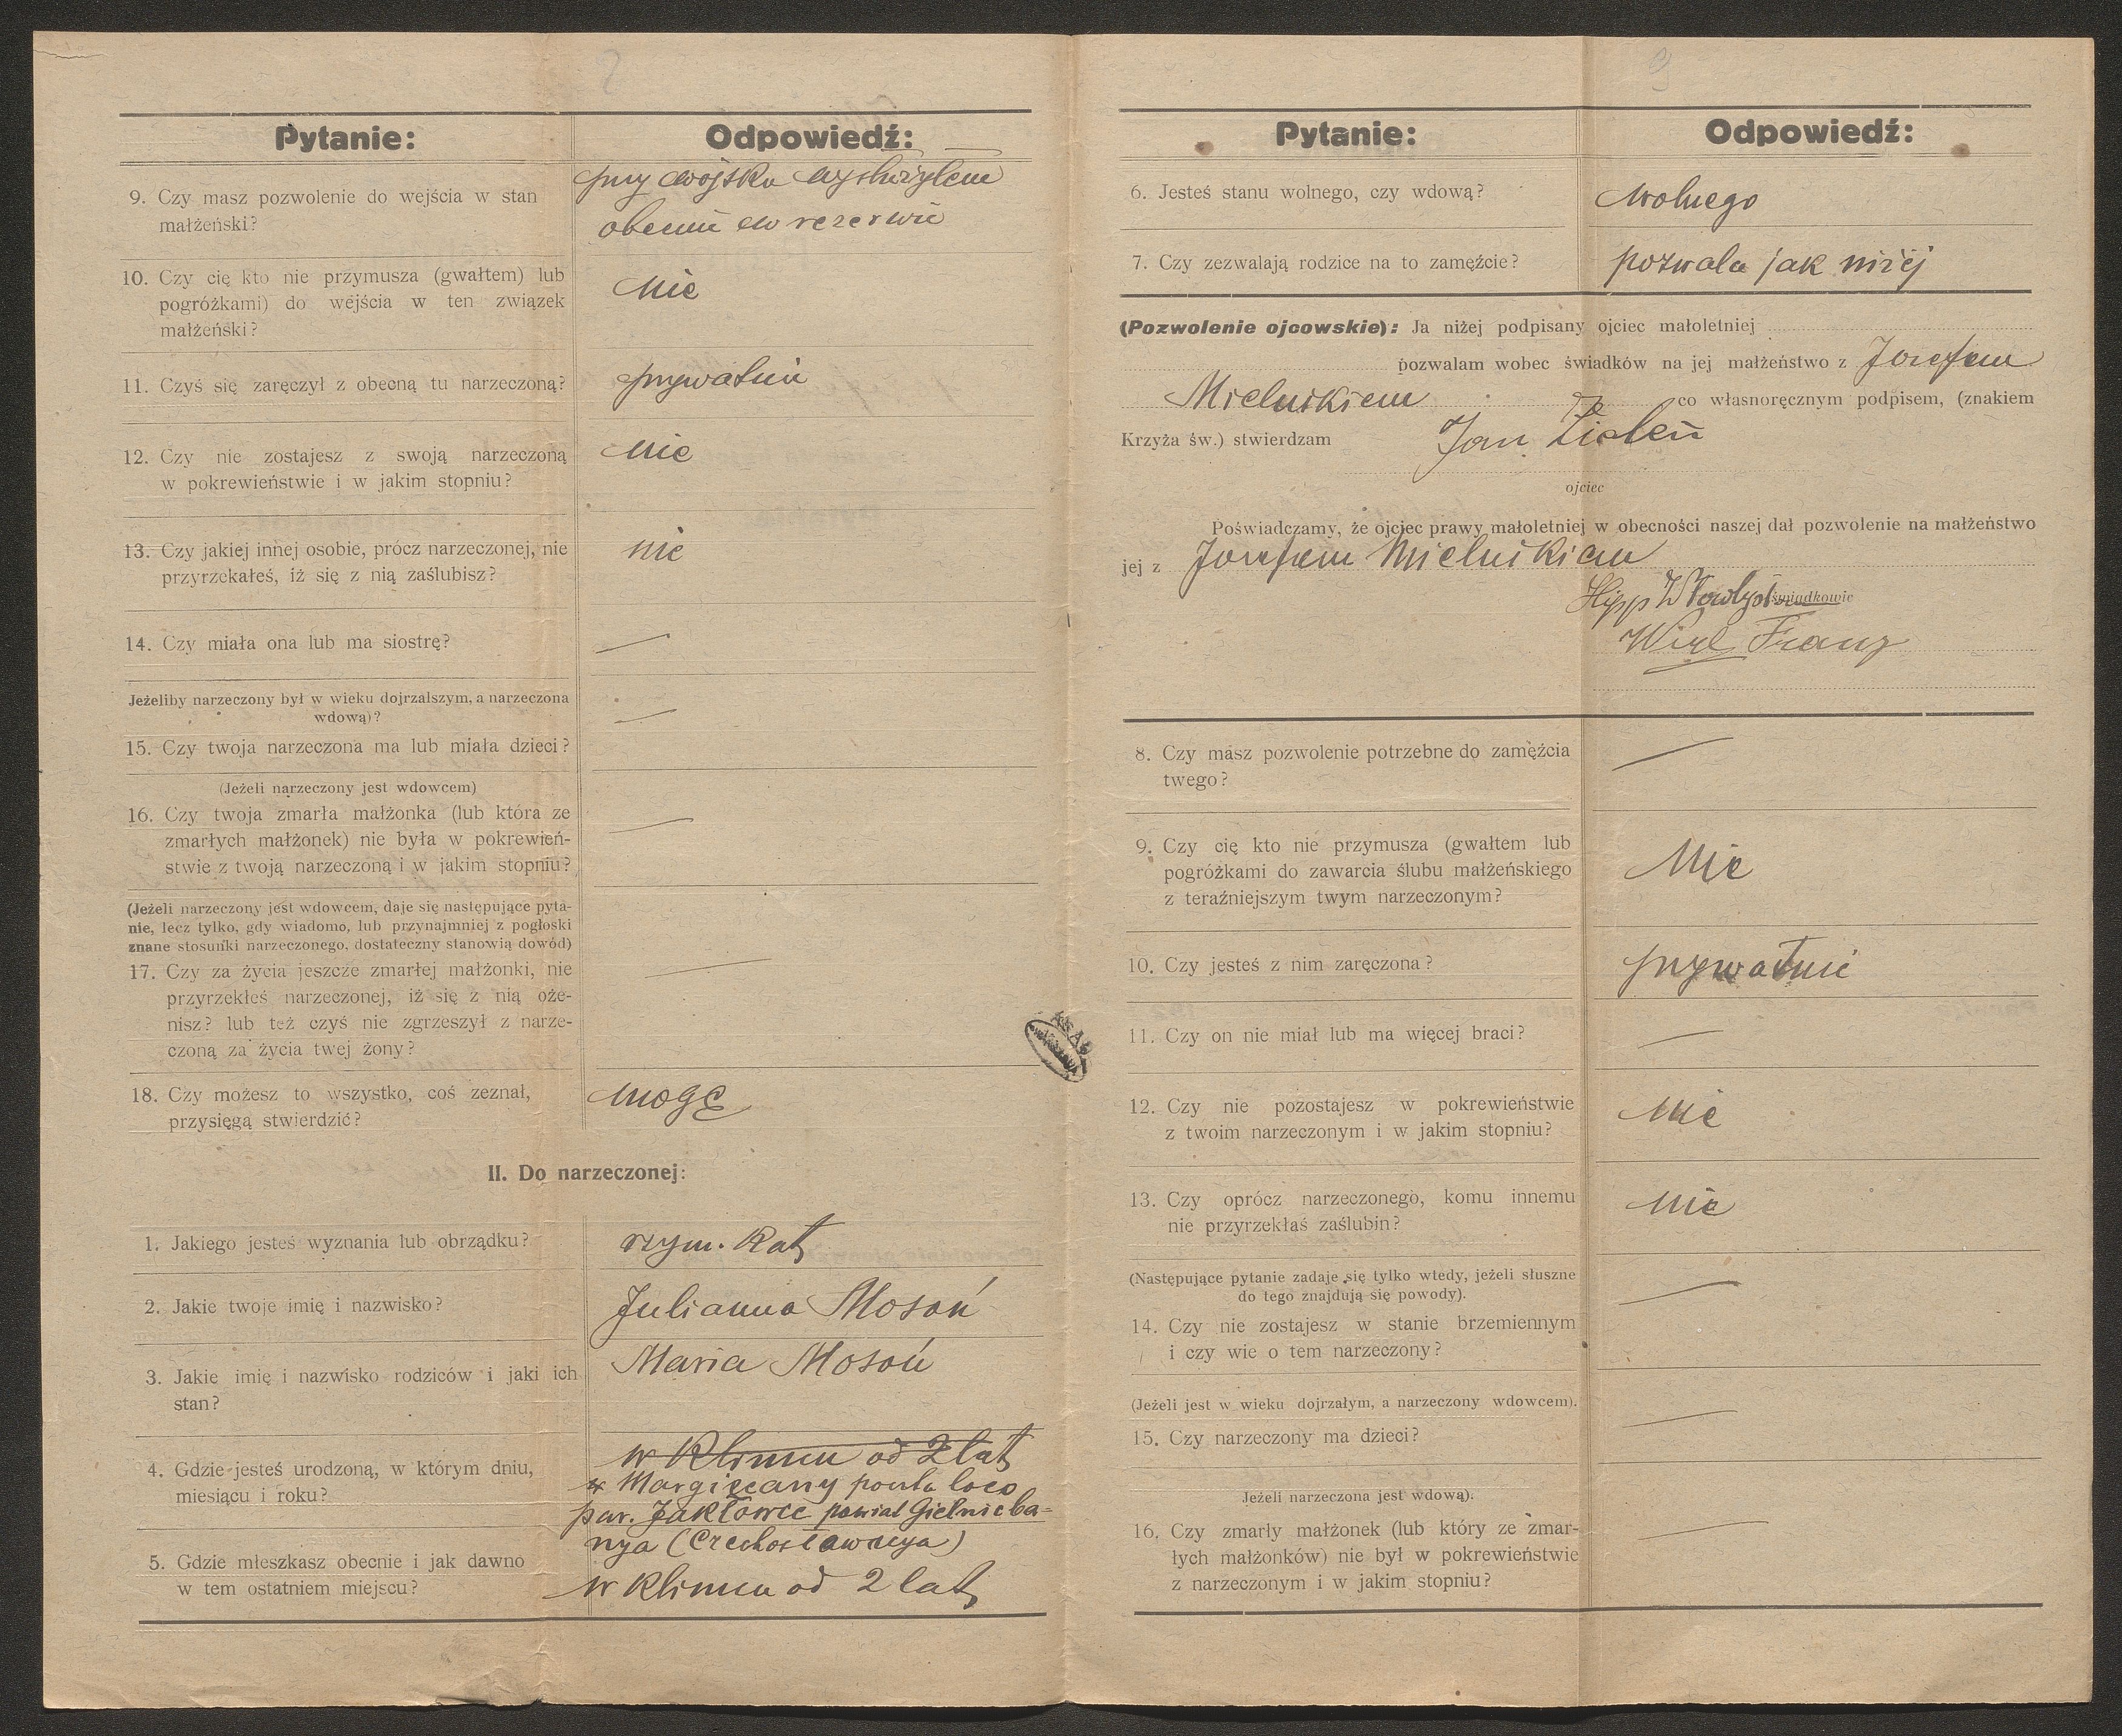 Pytanie:
Odpowiedź:
9. Czy masz pozwolenie do wejścia w stan
małżeński?
przy wojsku wysłużyłem
obecnie w rezerwie
10. Czy cię kto nie przymusza (gwałtem) lub
pogróżkami) do wejścia w ten związek
małżeński?
nie
11. Czyś się zaręczył z obecną tu narzeczoną?
prywatnie
12. Czy nie zostajesz z swoją narzeczoną
w pokrewieństwie i w jakim stopniu?
nie
13. Czy jakiej innej osobie, prócz narzeczonej, nie
przyrzekałeś, iż się z nią zaślubisz?
nie
14. Czy miała ona lub ma siostrę?
—
Jeżeliby narzeczony był w wieku dojrzalszym, a narzeczona
wdową)?
15. Czy twoja narzeczona ma lub miała dzieci?
—
(Jeżeli narzeczony jest wdowcem)
16. Czy twoja zmarła małżonka (lub która ze
zmarłych małżonek) nie była w pokrewień-
stwie z twoją narzeczoną i w jakim stopniu?
—
(Jeżeli narzeczony jest wdowcem, daje się następujące pyta-
nie, lecz tylko, gdy wiadomo, lub przynajmniej z pogłoski
znane stosunki narzeczonego, dostateczny stanowią dowód)
17. Czy za życia jeszcze zmarłej małżonki, nie
przyrzekłeś narzeczonej, iż się z nią oże-
nisz? lub też czyś nie zgrzeszył z narze-
czoną za życia twej żony?
—
18. Czy możesz to wszystko, coś zeznał,
przysięgą stwierdzić?
mogę
II. Do narzeczonej:
1. Jakiego jesteś wyznania lub obrządku?
rzym. kat
2. Jakie twoje imię i nazwisko?
Julianna Mosoń
3. Jakie imię i nazwisko rodziców i jaki ich
stan?
Maria Mosoń
4. Gdzie jesteś urodzoną, w którym dniu,
miesiącu i roku?
w Klimcu od 2 lat
w Margiecany poczta loco
par. Jakłowce powiat Gielnicba=
nya (Czechosławacya)
5. Gdzie mieszkasz obecnie i jak dawno
w tem ostatniem miejscu?
w Klimcu od 2 lat
Pytanie:
Odpowiedź:
6. Jesteś stanu wolnego, czy wdową?
wolnego
7. Czy zezwalają rodzice na to zamęźcie?
pozwala jak niżej
(Pozwolenie ojcowskie): Ja niżej podpisany ojciec małoletniej
pozwalam wobec świadków na jej małżeństwo z Josefem
Mielnikiem co własnoręcznym podpisem, (znakiem
Krzyża św.) stwierdzam Jan Zieleń
ojciec
Poświadczamy, że ojciec prawy małoletniej w obecności naszej dał pozwolenie na małżeństwo
jej z Josefem Mielnikiem
Hipp świadkowie
Franz
8. Czy masz pozwolenie potrzebne do zamęźcia
twego?
—
9. Czy cię kto nie przymusza (gwałtem lub
pogróżkami do zawarcia ślubu małżeńskiego
z teraźniejszym twym narzeczonym?
Nie
10. Czy jesteś z nim zaręczona?
prywatnie
11. Czy on nie miał lub ma więcej braci?
—
12. Czy nie pozostajesz w pokrewieństwie
z twoim narzeczonym i w jakim stopniu?
nie
13. Czy oprócz narzeczonego, komu innemu
nie przyrzekłaś zaślubin?
nie
(Następujące pytanie zadaje się tylko wtedy, jeżeli słuszne
do tego znajdują się powody).
14. Czy nie zostajesz w stanie brzemiennym
i czy wie o tem narzeczony?
—
(Jeżeli jest w wieku dojrzałym, a narzeczony wdowcem).
15. Czy narzeczony ma dzieci?
—
Jeżeli narzeczona jest wdową).
16. Czy zmarły małżonek (lub który ze zmar-
łych małżonków) nie był w pokrewieństwie
z narzeczonym i w jakim stopniu?
—